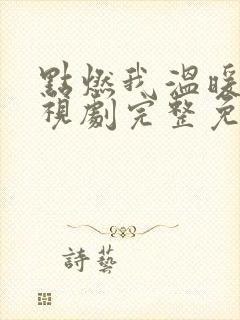 點燃我 溫暖
視劇完整免
詩藝